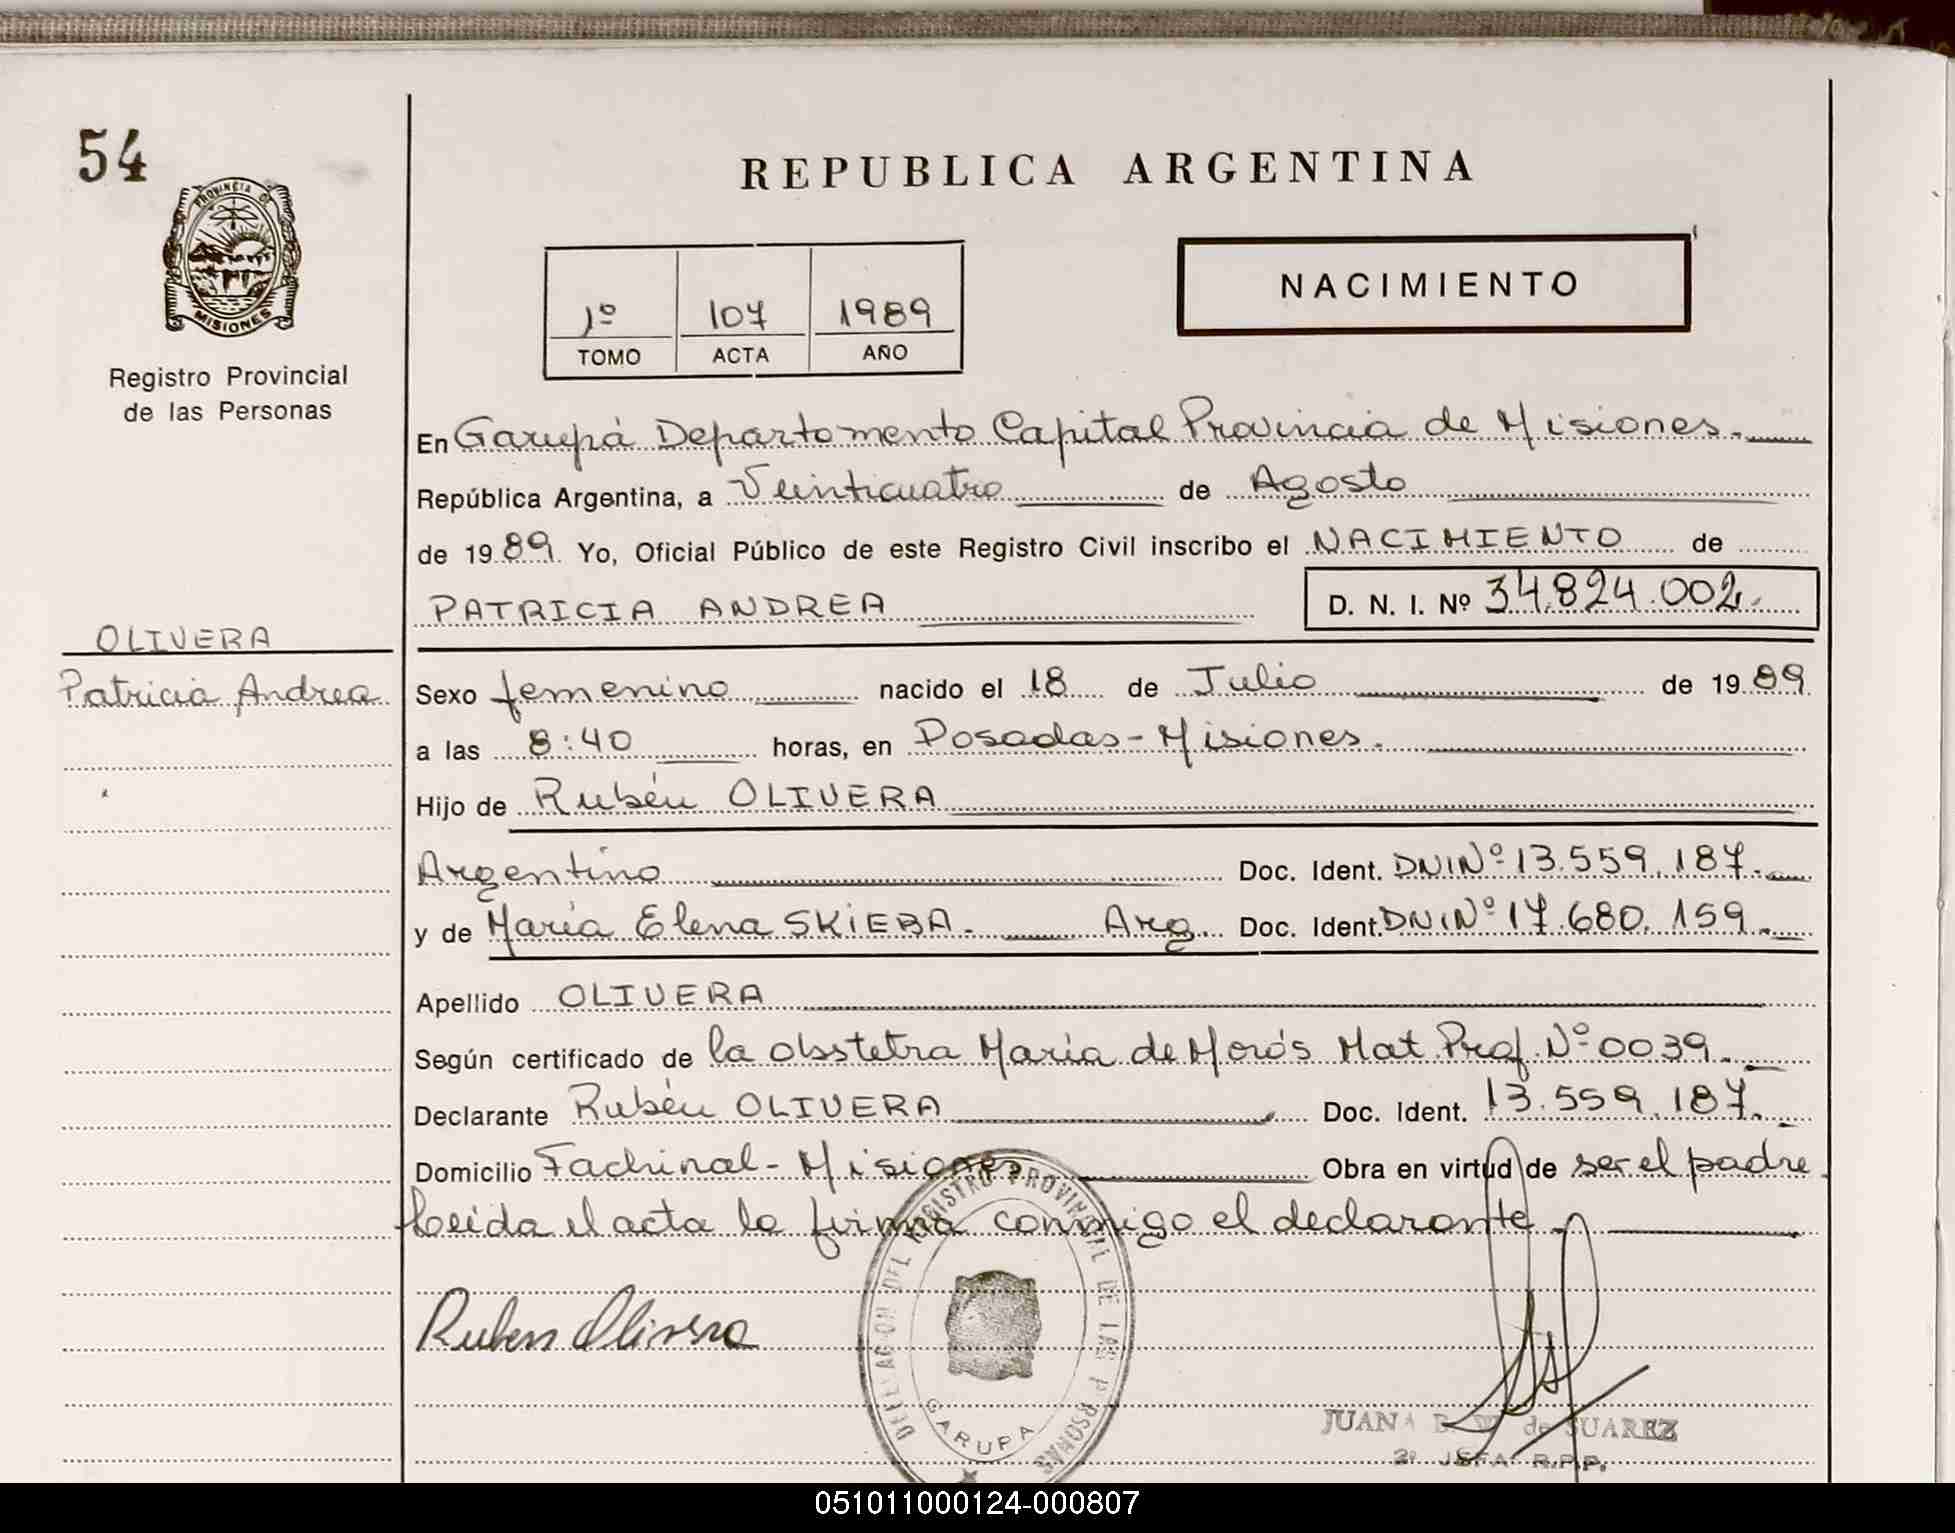 54
PROVINCIA DE
MISIONES
Registro Provincial
de las Personas
REPUBLICA ARGENTINA
1º 107 1989
TOMO ACTA AÑO
NACIMIENTO
En Garupá Departamento Capital Provincia de Misiones.
República Argentina, a Veinticuatro de Agosto
de 1989 Yo, Oficial Público de este Registro Civil inscribo el NACIMIENTO de
PATRICIA ANDREA D. N. I. Nº 34.824.002.
OLIVERA
Patricia Andrea
Sexo femenino nacido el 18 de Julio de 1989
a las 8:40 horas, en Posadas-Misiones.
Hijo de Rubén OLIVERA
Argentino Doc. Ident. DNI Nº 13.559.187.
y de María Elena SKIEBA. Arg. Doc. Ident. DNI Nº 17.680.159.
Apellido OLIVERA
Según certificado de la obstetra María de Morós Mat. Prof. Nº 0039.
Declarante Rubén OLIVERA Doc. Ident. 13.559.187.
Domicilio Fachinal-Misiones Obra en virtud de ser el padre.
Leída el acta la firma conmigo el declarante.
Ruben Olivera
DELEGACION DEL REGISTRO PROVINCIAL DE LAS PERSONAS
GARUPA
JUANA de SUAREZ
2º JEFA R.P.P.
051011000124-000807